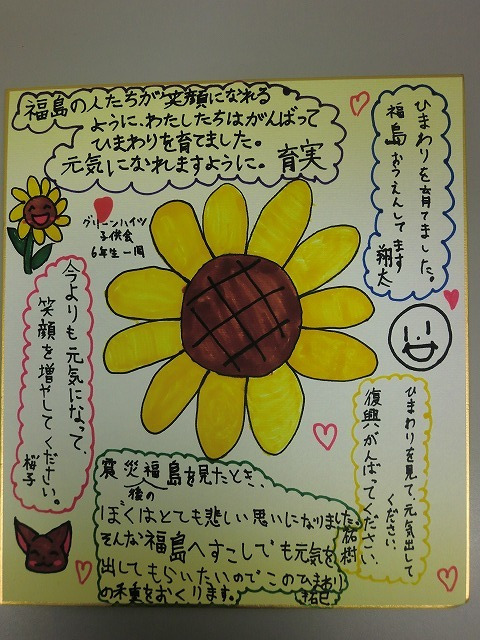 福島の人たちが笑顔になれる
ように、わたしたちはがんばって
ひまわりを育てました。
元気になれますように。 育実
ひまわりを育てました。
福島おうえんしてます
翔太
グリーンハイツ
子供会
6年生一同
今よりも元気になって、
笑顔を増やしてください。
桜子
ひまわりを見て、元気出して
ください。
復興がんばってください。
祐樹
震災後の福島を見たとき、
ぼくはとても悲しい思いになりました。
そんな福島へすこしでも元気を
出してもらいたいのでこのひまわり
の種をおくります。
祐巳